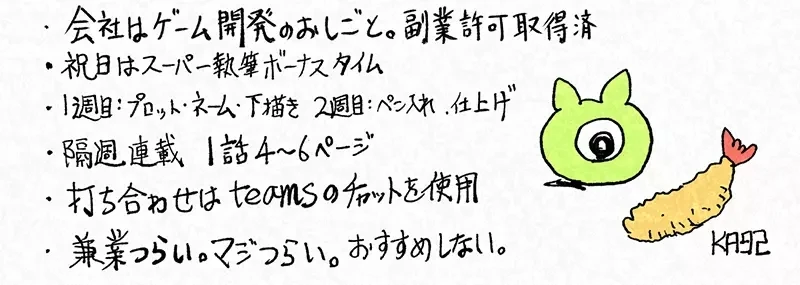 ・会社はゲーム開発のおしごと。副業許可取得済
・祝日はスーパー執筆ボーナスタイム
・1週目:プロット・ネーム・下描き 2週目:ペン入れ・仕上げ
・隔週連載 1話4〜6ページ
・打ち合わせはteamsのチャットを使用
・兼業つらい。マジつらい。おすすめしない。